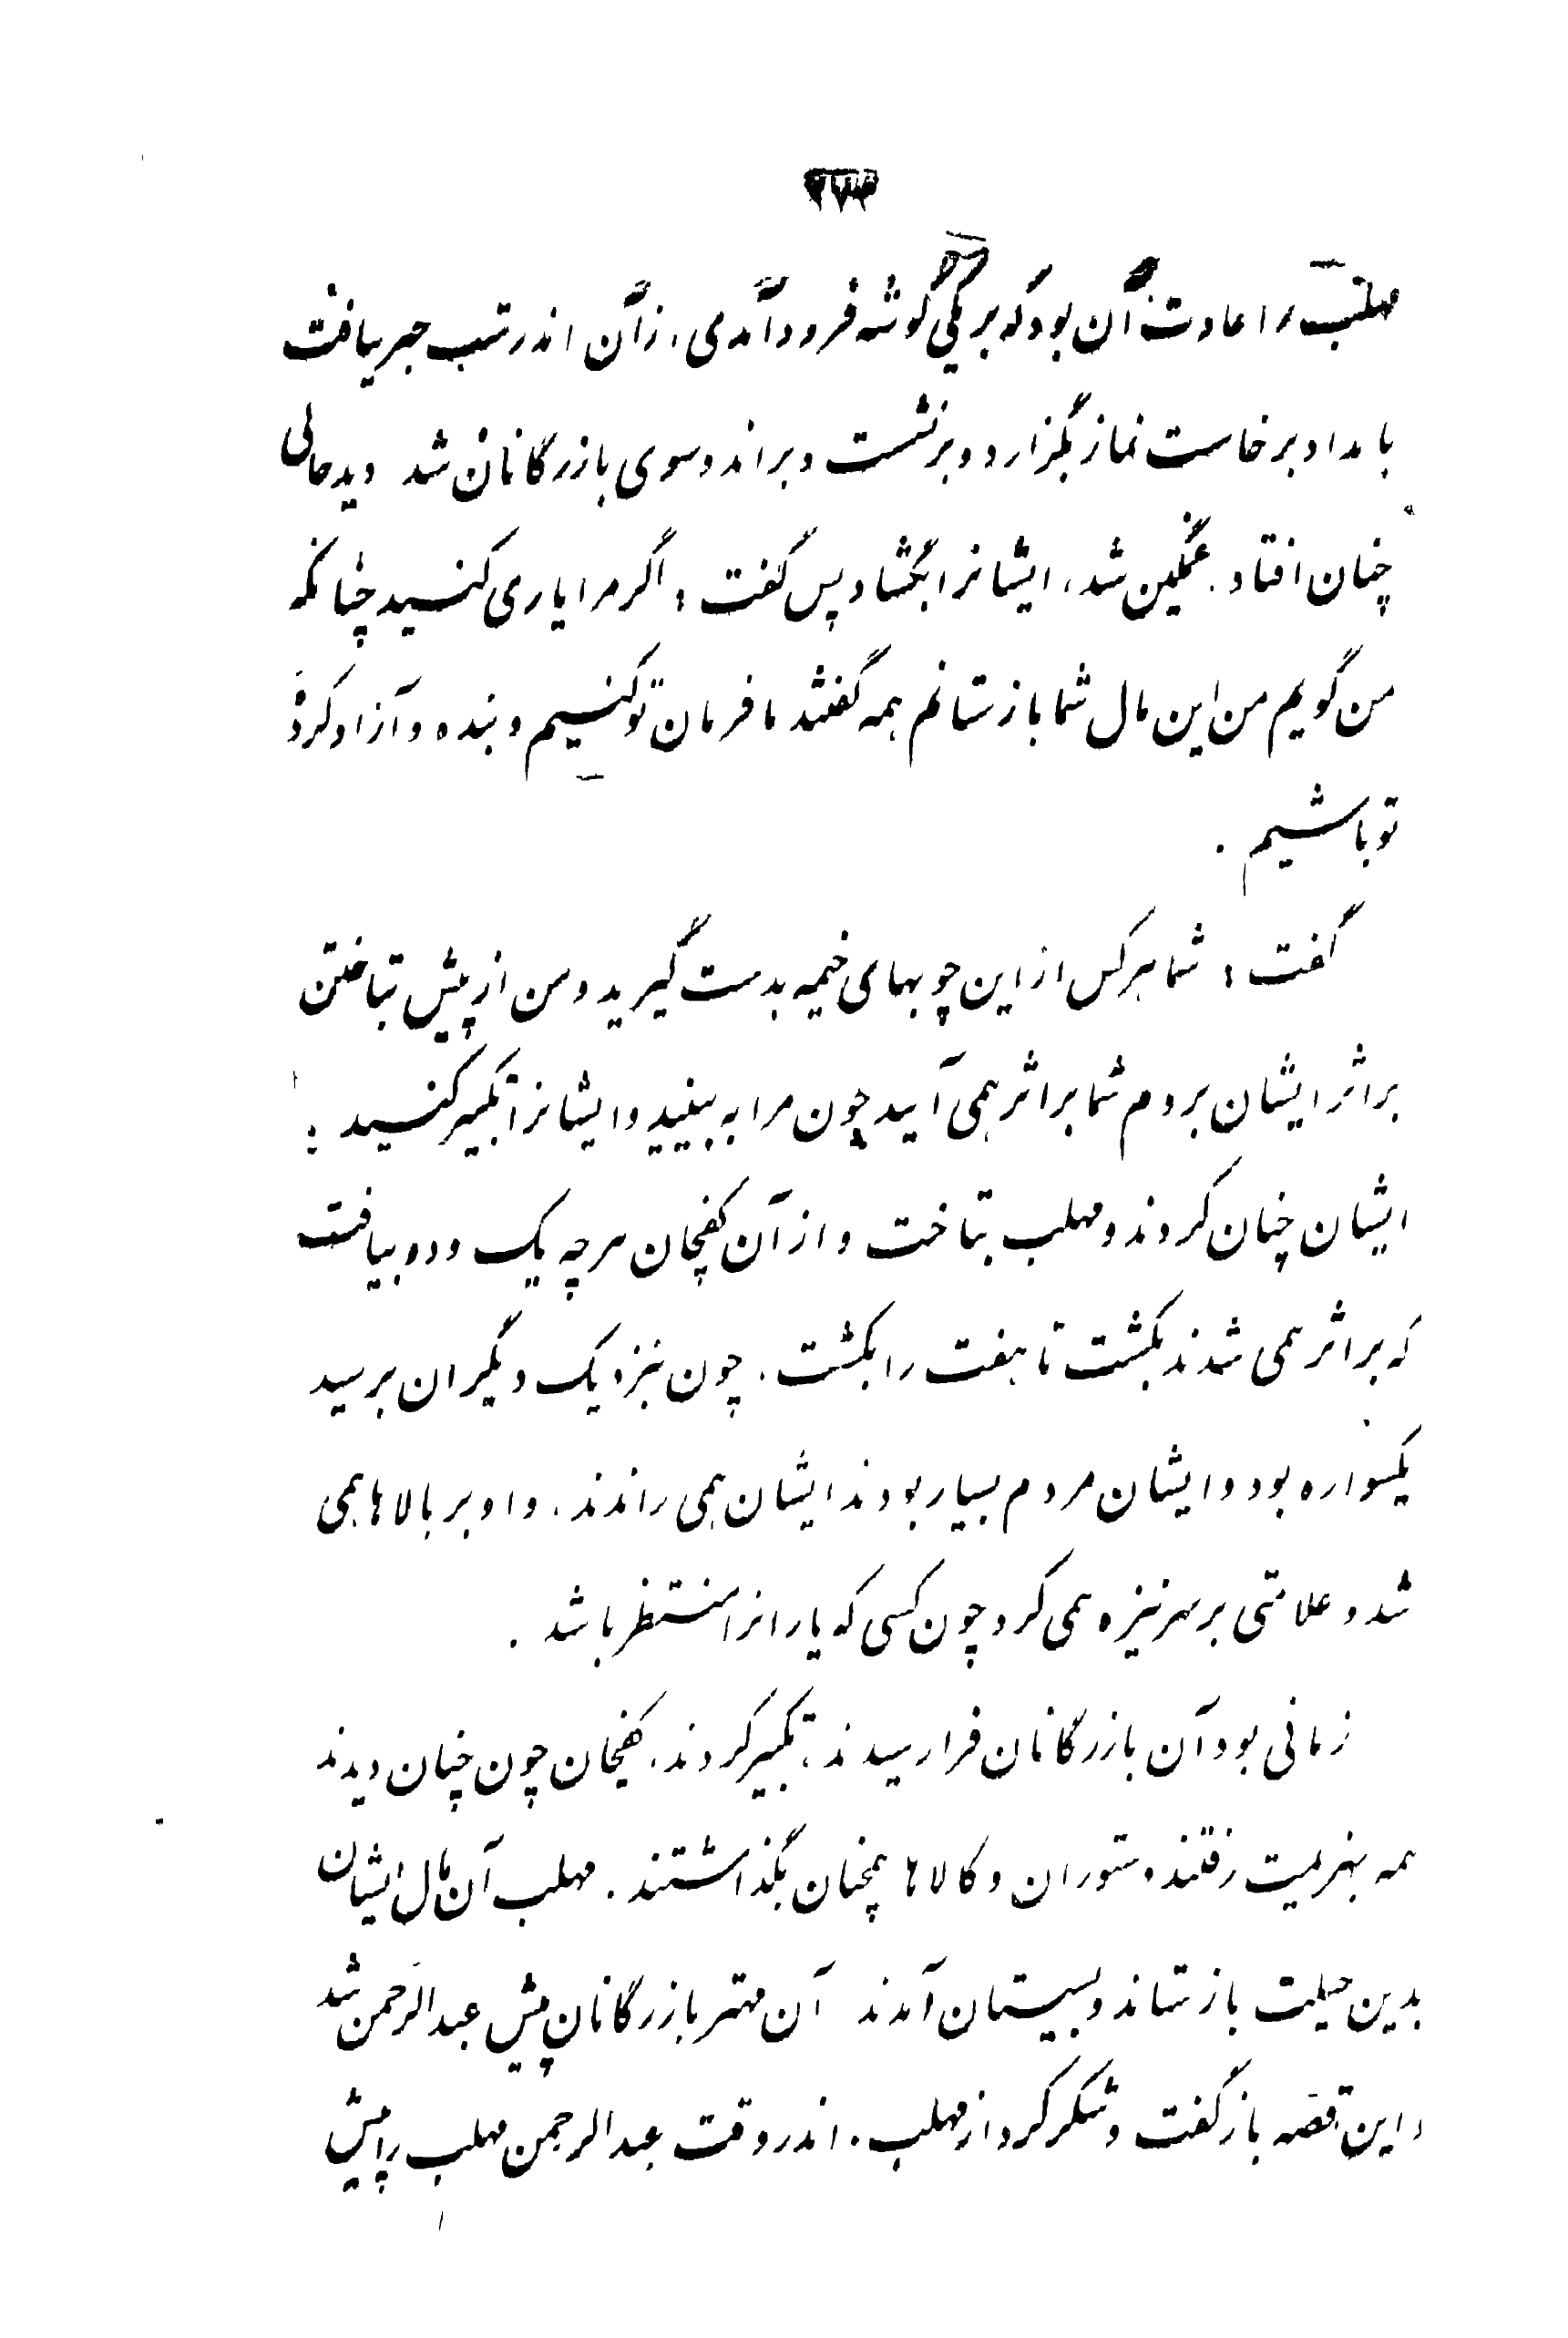 ۲۷۳
مهلب را عادت آن بود که بر یکی گوشه فرود آمدی، زآن اندر شب خبر یافت
بامداد برخاست نماز بگزارد و برنشست و براند و سوی بازرگانان شد دید حالی
چنان افتاد. غمگین شد، ایشانرا بگشاد پس گفت: اگر مرا یاری کنسید چنانکه
من گویم من این مال شما بازستانم همه گفتند ما فرمان تو کنسیم و بنده و آزاد کردهٔ
تو باشیم.
گفت: شما هر کس از این چوبهای خیمه بدست گیرید و من از پیش بتاختن
بر اثر ایشان بروم شما بر اثر همی آیید چون مرا به بینید و ایشانرا تکبیر کنسید:
ایشان چنان کردند و مهلب بتاخت و از آن کفجان هرچه یک و دو بیافت
که بر اثر همی شدند بکشت تا هفت را بکشت. چون بنزدیک دیگران برسید
یکسواره بود و ایشان مردم بسیار بودند ایشان همی راندند. و او بر بالاها همی
شد و علامتی بر سر نیزه همی کرد چون کسی که یارانرا منتظر باشد.
زمانی بود آن بازرگانان فرا رسیدند، تکبیر کردند، کفجان چون چنان دیدند
همه بهزیمت رفتند و ستوران و کالاها همچنان بگذاشتند. مهلب آن مال ایشان
بدین حیلت بازستاند و بسیستان آمدند آن مهتر بازرگانان پیش عبدالرحمن شد
و این قصه باز گفت و شکر کرد از مهلب. اندر وقت عبدالرحمن مهلب را پیش